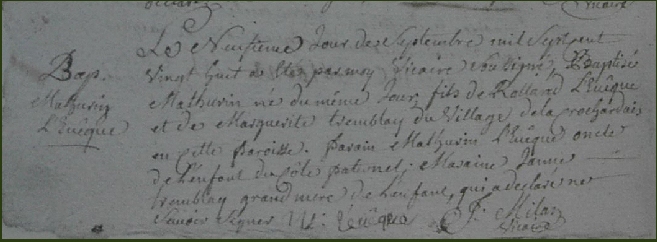 Vicaire
Le Neufieme Jour de Septembre mil Sept cent
Bap. vingt huit a été par moy Vicaire Soussigné, Baptisée
Mathurin Mathurin né du même Jour, fils de Rolland L'Evêque
L'Evêque et de Marguerite tremblay du Village de la prochardais
en cette Paroisse. Parain Mathurin L'Evêque oncle
de L'enfant du Côté paternel; Maraine Janne
tremblay grand mere de L'enfant, qui a declaré ne
Scavoir Signer M: L'Evêque P: Milar
Vicaire